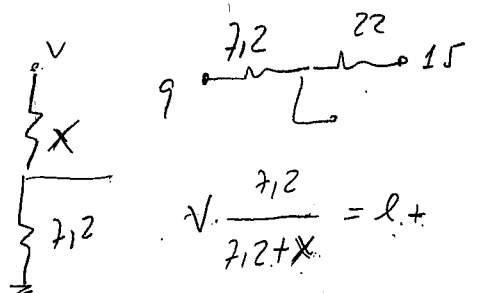 V
X
7,2
9 7,2 22 15
V. 7,2 / 7,2+X = e+